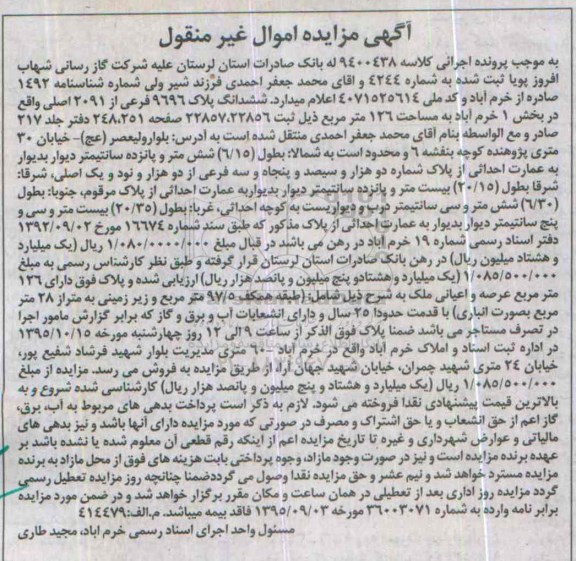 آگهی مزایده اموال غیر منقول
به موجب پرونده اجرائی کلاسه ۹۴۰۰۴۳۸ له بانک صادرات استان لرستان علیه شرکت گاز رسانی شهاب
افروز پویا ثبت شده به شماره ۴۲۴۴ و اقای محمد جعفر احمدی فرزند شیر ولی شماره شناسنامه ۱۴۹۲
صادره از خرم آباد و کد ملی ۴۰۷۱۵۲۵۶۱۴ اعلام میدارد. ششدانگ پلاک ۹۶۹۶ فرعی از ۲۰۹۱ اصلی واقع
در بخش ۱ خرم آباد به مساحت ۱۲۶ متر مربع ذیل ثبت ۲۲۸۵۷،۲۲۸۵۶ صفحه ۲۴۸،۲۵۱ دفتر جلد ۲۱۷
صادر و مع الواسطه بنام آقای محمد جعفر احمدی منتقل شده است به آدرس: بلوارولیعصر (عج)– خیابان ۳۰
متری پژوهنده کوچه بنفشه ۶ و محدود است به شمالا: بطول (۶/۱۵) شش متر و پانزده سانتیمتر دیوار بدیوار
به عمارت احداثی از پلاک شماره دو هزار و سیصد و پنجاه و سه فرعی از دو هزار و نود و یک اصلی، شرقا:
شرقا بطول (۲۰/۱۵) بیست متر و پانزده سانتیمتر دیوار بدیواربه عمارت احداثی از پلاک مرقوم، جنوبا: بطول
(۶/۳۰) شش متر و سی سانتیمتر درب و دیواریست به کوچه احداثی، غربا: بطول (۲۰/۳۵) بیست متر و سی و
پنج سانتیمتر دیوار بدیوار به عمارت احداثی از پلاک مذکور که طبق سند شماره ۱۶۶۷۴ مورخ ۱۳۹۲/۰۹/۰۲
دفتر اسناد رسمی شماره ۱۹ خرم آباد در رهن می باشد در قبال مبلغ ۱/۰۸۰/۰۰۰۰/۰۰۰ ریال (یک میلیارد
و هشتاد میلیون ریال) در رهن بانک صادرات استان لرستان قرار گرفته و طبق نظر کارشناس رسمی به مبلغ
۱/۰۸۵/۵۰۰/۰۰۰ (یک میلیارد و هشتادو پنج میلیون و پانصد هزار ریال) ارزیابی شده و پلاک فوق دارای ۱۲۶
متر مربع عرصه و اعیانی ملک به شرح ذیل شامل: (طبقه همکف ۹۷/۵ متر مربع و زیر زمینی به متراژ ۲۸ متر
مربع بصورت انباری) با قدمت حدودا ۲۵ سال و دارای انشعابات آب و برق و گاز که برابر گزارش مامور اجرا
در تصرف مستاجر می باشد ضمنا پلاک فوق الذکر از ساعت ۹ الی ۱۲ روز چهارشنبه مورخه ۱۳۹۵/۱۰/۱۵
در اداره ثبت اسناد و املاک خرم آباد واقع در خرم آباد ۶۰ متری مدیریت بلوار شهید فرشاد شفیع پور،
خیابان ۲۴ متری شهید چمران، خیابان شهید جهان آرا، از طریق مزایده به فروش می رسد. مزایده از مبلغ
۱/۰۸۵/۵۰۰/۰۰۰ ریال (یک میلیارد و هشتاد و پنج میلیون و پانصد هزار ریال) کارشناسی شده شروع و به
بالاترین قیمت پیشنهادی نقدا فروخته می شود. لازم به ذکر است پرداخت بدهی های مربوط به آب، برق،
گاز اعم از حق انشعاب و یا حق اشتراک و مصرف در صورتی که مورد مزایده دارای آنها باشد و نیز بدهی های
مالیاتی و عوارض شهرداری و غیره تا تاریخ مزایده اعم از اینکه رقم قطعی آن معلوم شده یا نشده باشد بر
عهده برنده مزایده است و نیز در صورت وجود مازاد، وجوه پرداختی بابت هزینه های فوق از محل مازاد به برنده
مزایده مسترد خواهد شد و نیم عشر و حق مزایده نقدا وصول می گرددضمنا چنانچه روز مزایده تعطیل رسمی
گردد مزایده روز اداری بعد از تعطیلی در همان ساعت و مکان مقرر برگزار خواهد شد و در ضمن مورد مزایده
برابر نامه وارده به شماره ۳۶۰۰۳۰۷۱ مورخه ۱۳۹۵/۰۹/۰۳ فاقد بیمه میباشد. م.الف:۴۱۴۴۷۹
مسئول واحد اجرای اسناد رسمی خرم اباد، مجید طاری